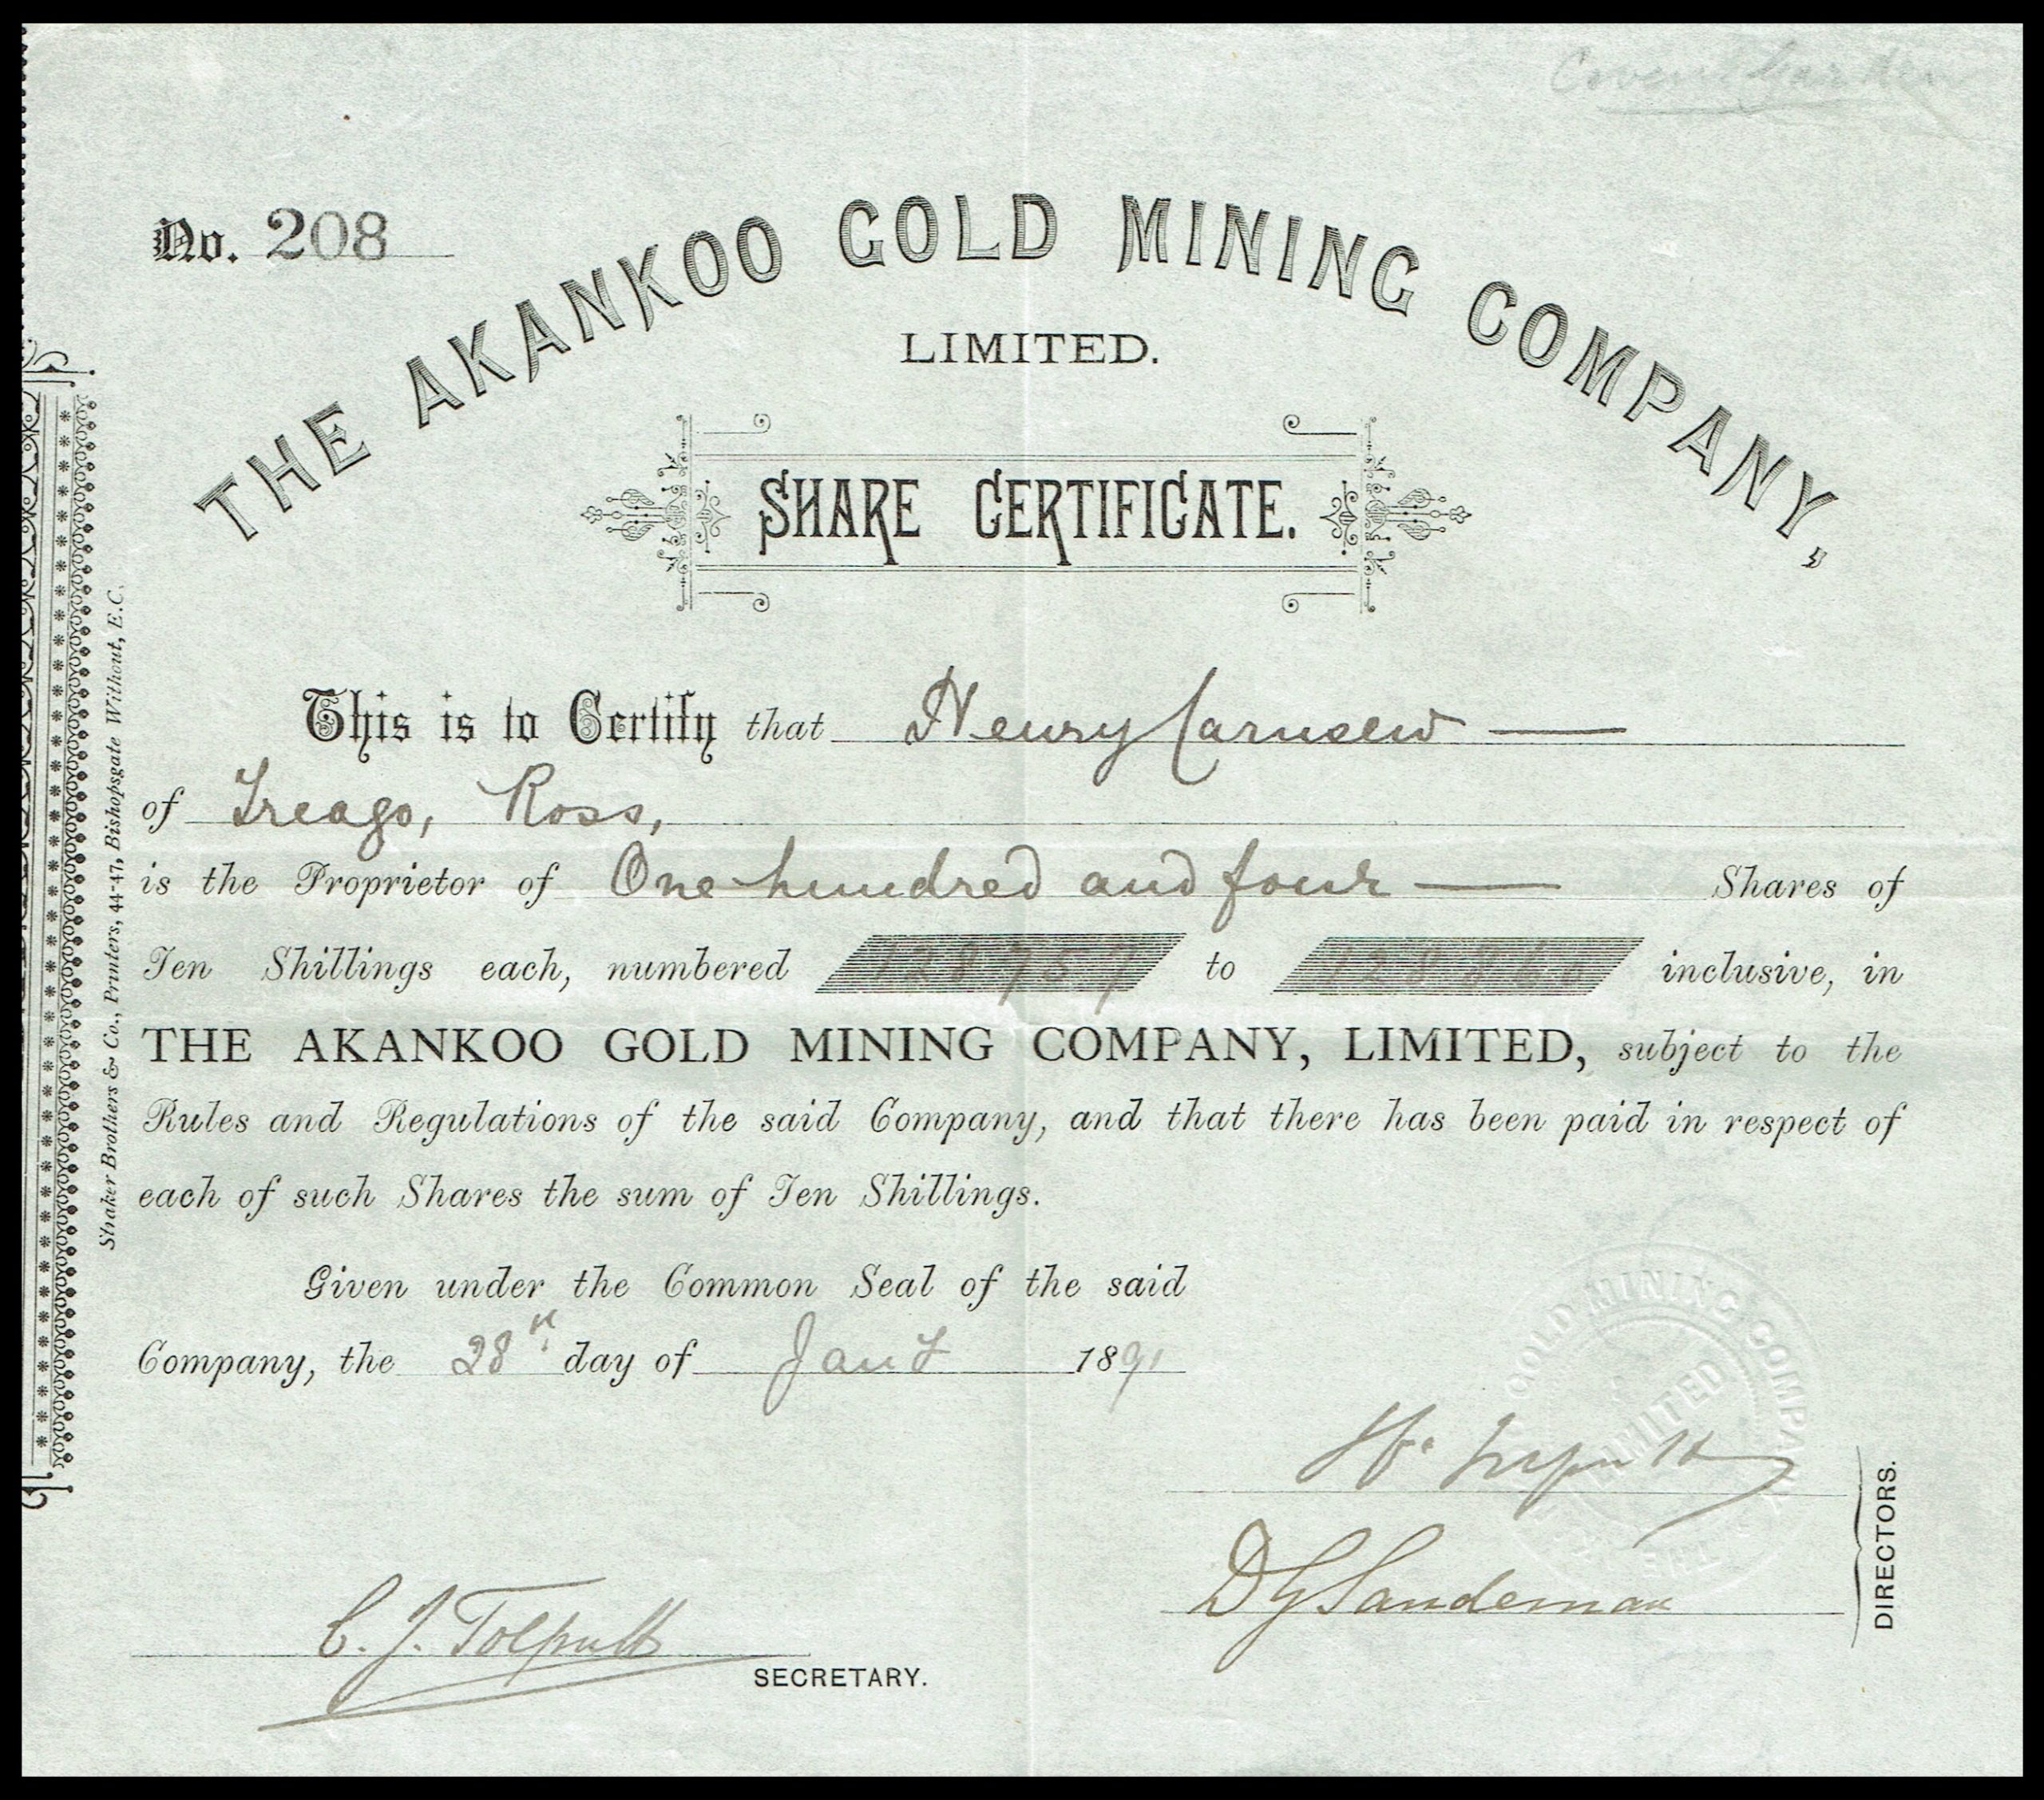 Covent Garden
No. 208
THE AKANKOO GOLD MINING COMPANY,
LIMITED.
SHARE CERTIFICATE.
This is to Certify that Henry Carnsew
of Treago, Ross,
is the Proprietor of One hundred and four Shares of
Ten Shillings each, numbered 128757 to 128860 inclusive, in
THE AKANKOO GOLD MINING COMPANY, LIMITED, subject to the
Rules and Regulations of the said Company, and that there has been paid in respect of
each of such Shares the sum of Ten Shillings.
Given under the Common Seal of the said
Company, the 28th day of Jany 1891
GOLD MINING COMPANY
LIMITED
D G Sandeman
DIRECTORS.
C. J. Tolputt
SECRETARY.
Straker Brothers & Co., Printers, 44-47, Bishopsgate Without, E.C.